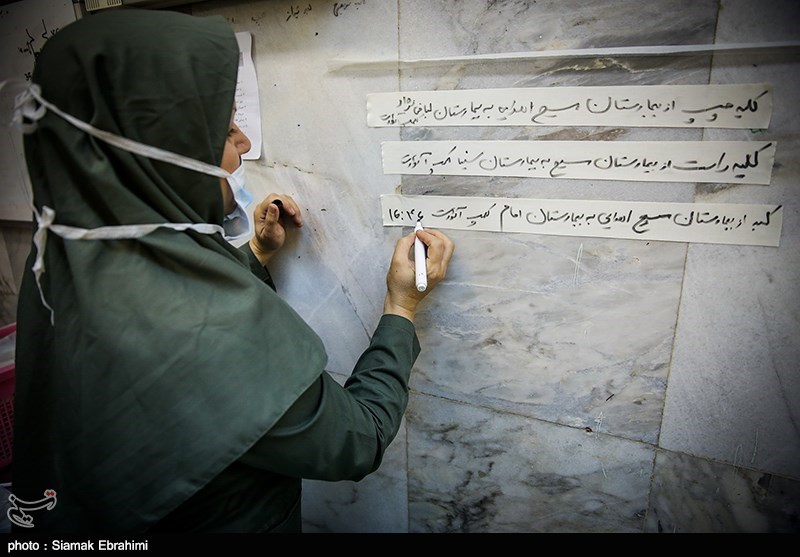 کلیه چپ از بیمارستان مسیح دانشوری به بیمارستان لبافی نژاد
کلیه راست از بیمارستان مسیح به بیمارستان سینا کلمپ آئورت
کبد از بیمارستان مسیح دانشوری به بیمارستان امام کلمپ آئورت ۱۶:۳۶
photo : Siamak Ebrahimi